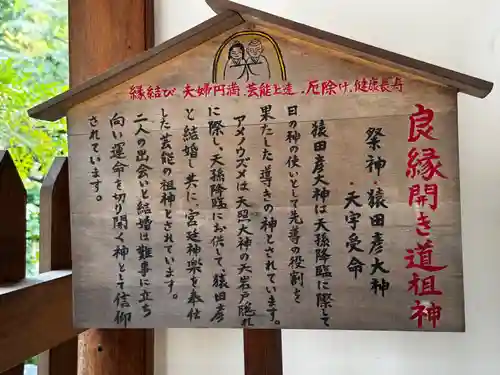 縁結び 夫婦円満 芸能上達 厄除け 健康長寿
良縁開き道祖神
祭神・猿田彦大神
・天宇受命
猿田彦大神は天孫降臨に際して
日の神の使いとして先導の役割を
果たした導きの神とされています。
アメノウズメは天照大神の天岩戸隠れ
に際し、天孫降臨にお供して、猿田彦
と結婚し共に、宮廷神楽を奉仕
した芸能の祖神とされています。
二人の出会いと結婚は難事に立ち
向い運命を切り開く神として信仰
されています。